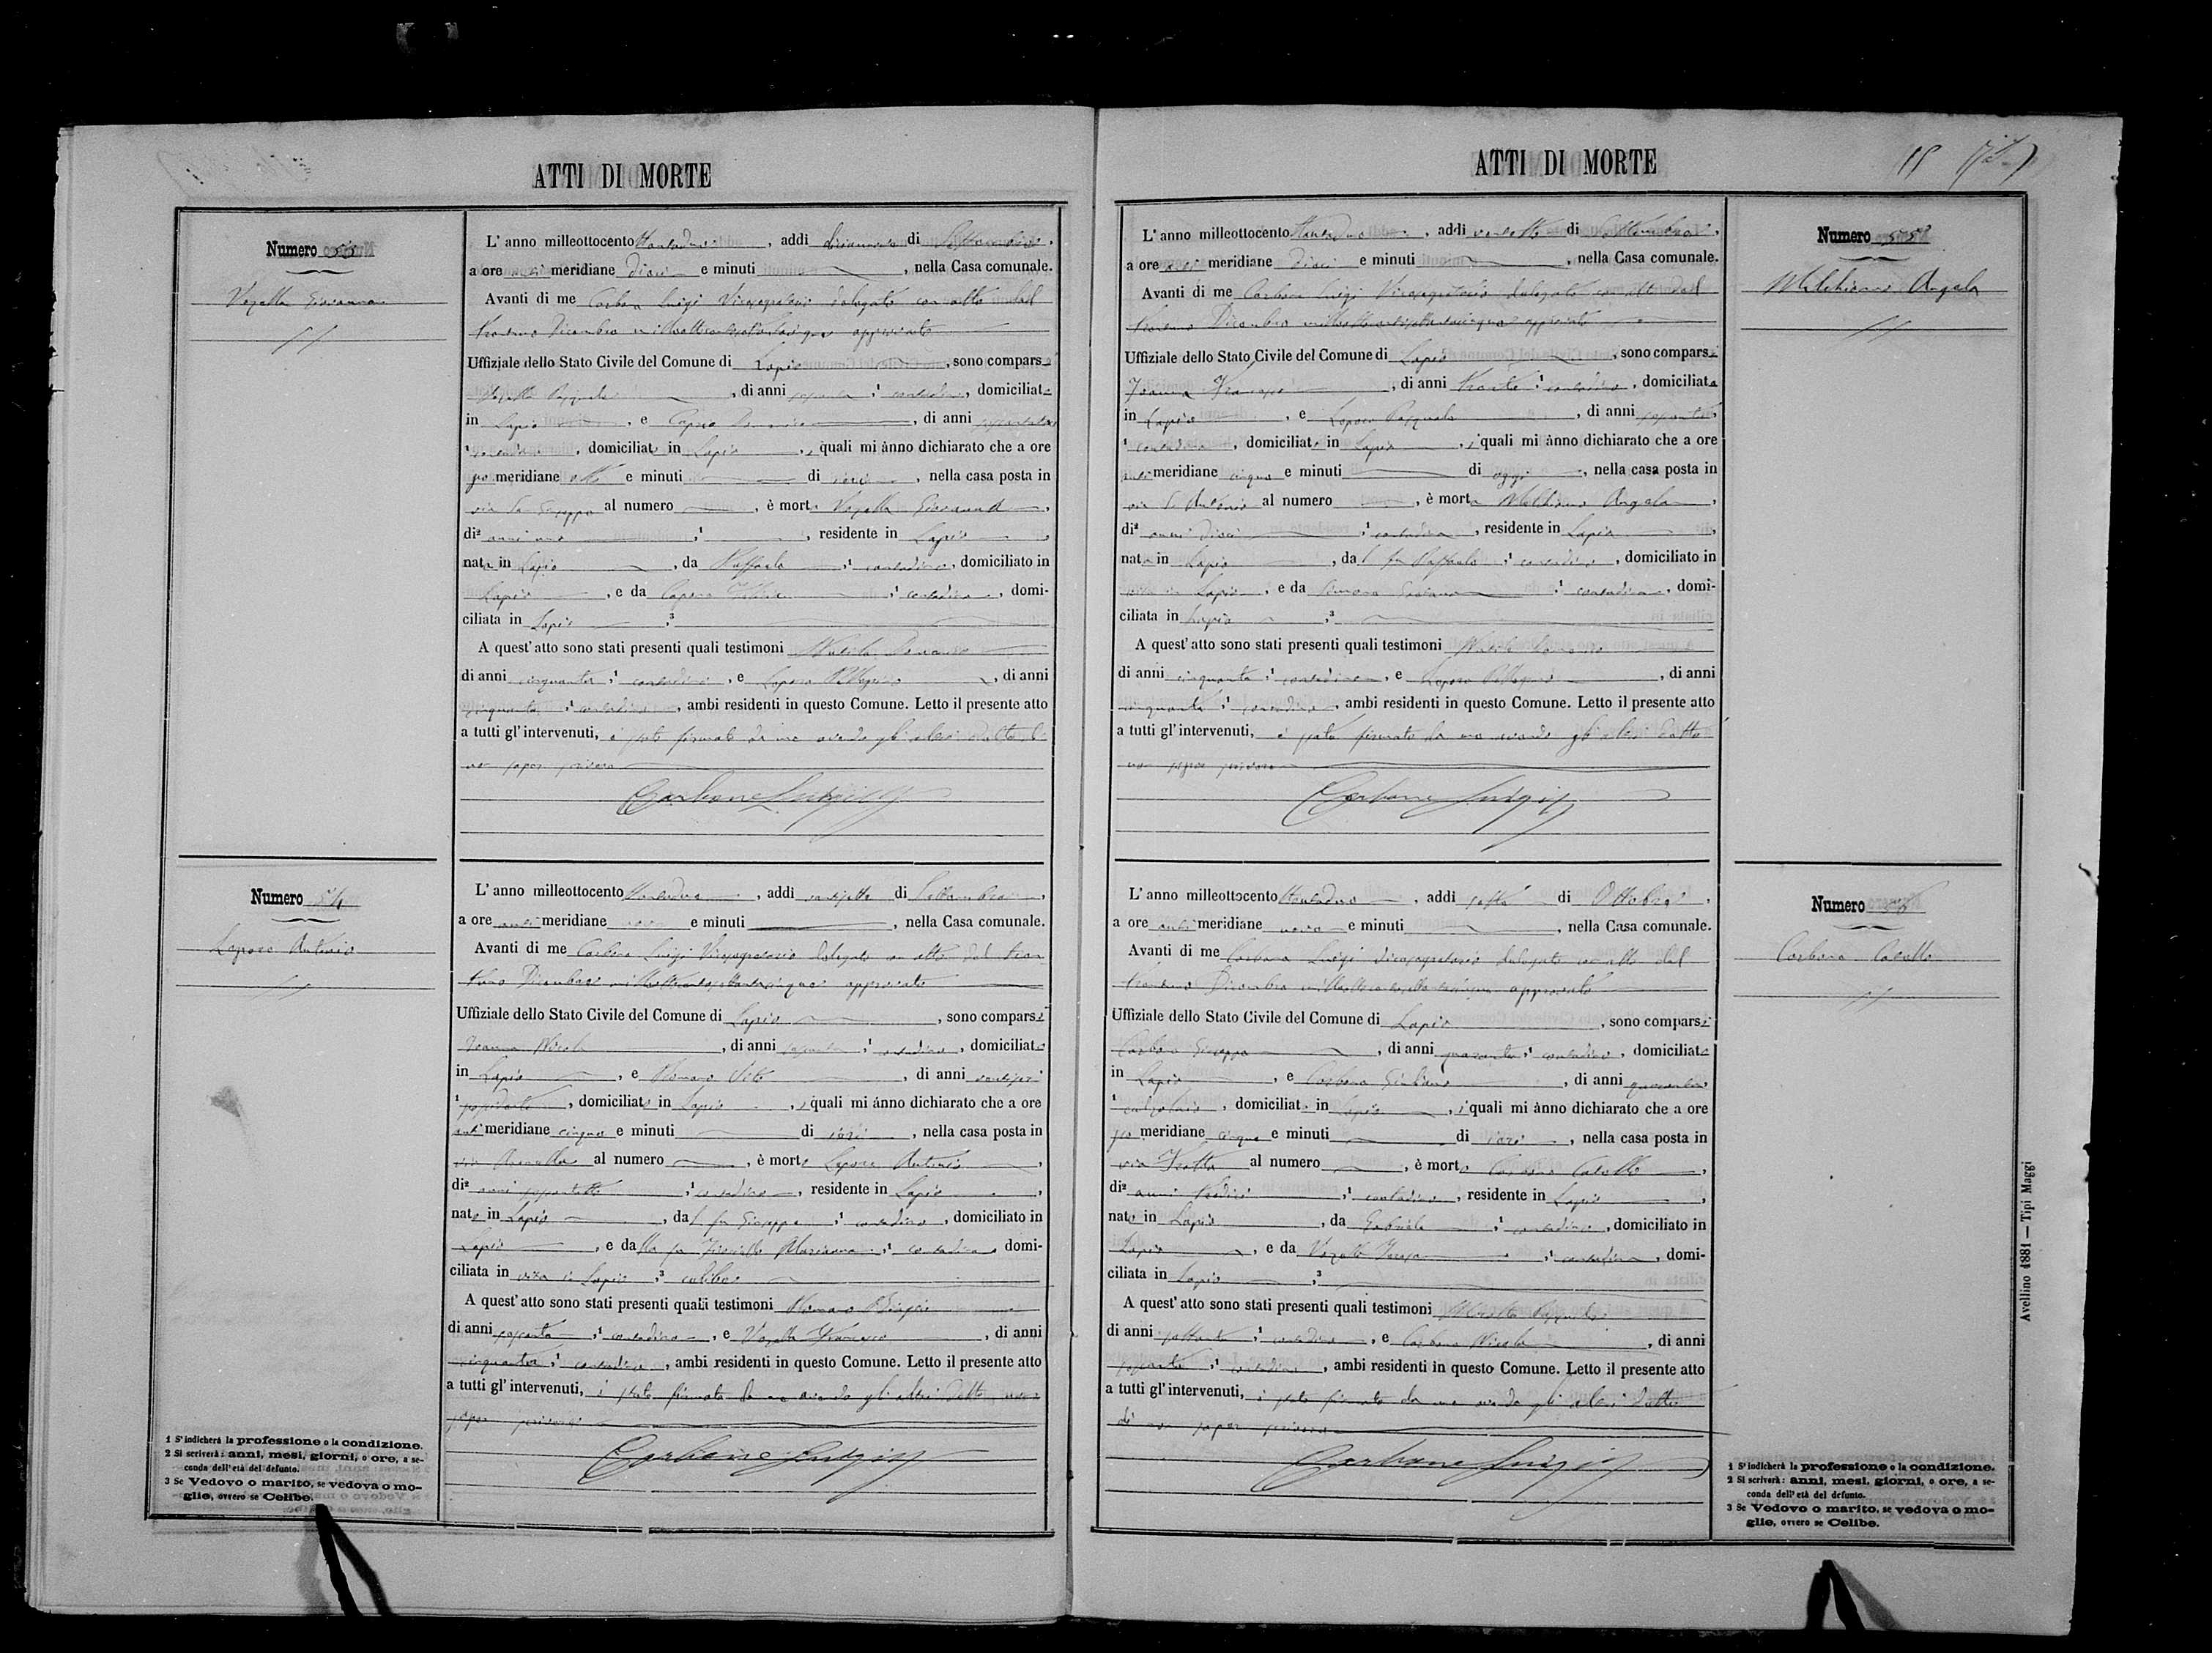 ATTI DI MORTE
Numero 53
Vozella Giovanna
L' anno milleottocento ottantadue, addì di Settembre,
a ore anti meridiane dieci e minuti, nella Casa comunale.
Avanti di me Carbone Luigi Vicesegretario delegato con atto del
trentuno Dicembre milleottocentosettantacinque approvato
Uffiziale dello Stato Civile del Comune di Lapio, sono comparsi
Vozella Pasquale, di anni sessanta,¹ contadino, domiciliato
in Lapio, e, di anni
¹ contadino, domiciliato in Lapio, i quali mi ánno dichiarato che a ore
pomeridiane otto e minuti di ieri, nella casa posta in
via San Giuseppe al numero, è morta Vozella Giovanna,
di² anni uno,¹, residente in Lapio,
nata in Lapio, da Raffaele,¹ contadino, domiciliato in
Lapio, e da,¹ contadina, domi-
ciliata in Lapio,³
A quest' atto sono stati presenti quali testimoni
di anni cinquanta,¹ contadino, e Lepore Pellegrino, di anni
cinquanta,¹ contadino, ambi residenti in questo Comune. Letto il presente atto
a tutti gl' intervenuti, è stato firmato da me avendo gli altri detto di
non saper scrivere
Carbone Luigi
Numero 54
Lepore Antonio
L' anno milleottocento ottantadue, addì ventisette di Settembre,
a ore anti meridiane nove e minuti, nella Casa comunale.
Avanti di me Carbone Luigi Vicesegretario delegato con atto del tren
tuno Dicembre milleottocentosettantacinque approvato
Uffiziale dello Stato Civile del Comune di Lapio, sono comparsi
Nicola, di anni sessanta,¹ contadino, domiciliato
in Lapio, e Romano Vito, di anni ventisei
¹, domiciliato in Lapio, i quali mi ánno dichiarato che a ore
anti meridiane cinque e minuti di ieri, nella casa posta in
via al numero, è morto Lepore Antonio,
di² anni,¹ contadino, residente in Lapio,
nato in Lapio, dal fu Giuseppe,¹ contadino, domiciliato in
Lapio, e dalla fu Marianna,¹ contadina, domi-
ciliata in vita in Lapio,³ celibe
A quest' atto sono stati presenti quali testimoni Romano Biagio
di anni sessanta,¹ contadino, e Vozella Francesco, di anni
cinquanta,¹ contadino, ambi residenti in questo Comune. Letto il presente atto
a tutti gl' intervenuti, è stato firmato da me avendo gli altri detto non
saper scrivere
Carbone Luigi
1 S' indicherà la professione o la condizione.
2 Si scriverà: anni, mesi, giorni, o ore, a se-
conda dell' età del defunto.
3 Se Vedovo o marito, se vedova o mo-
glie, ovvero se Celibe.
ATTI DI MORTE
15
Numero 55
Melchionno Angela
L' anno milleottocento ottantadue, addì ventotto di Settembre,
a ore anti meridiane dieci e minuti, nella Casa comunale.
Avanti di me Carbone Luigi Vicesegretario delegato con atto del
trentuno Dicembre milleottocentosettantacinque approvato
Uffiziale dello Stato Civile del Comune di Lapio, sono comparsi
Francesco, di anni trenta,¹ contadino, domiciliato
in Lapio, e Lepore Pasquale, di anni sessanta,
¹ contadino, domiciliato in Lapio, i quali mi ánno dichiarato che a ore
anti meridiane cinque e minuti di oggi, nella casa posta in
via S. Antonio al numero, è morta Melchionno Angela,
di² anni dieci,¹ contadina, residente in Lapio,
nata in Lapio, dal fu Raffaele,¹ contadino, domiciliato in
vita in Lapio, e da,¹ contadina, domi-
ciliata in Lapio,³
A quest' atto sono stati presenti quali testimoni
di anni cinquanta,¹ contadino, e Lepore Pellegrino, di anni
cinquanta,¹ contadino, ambi residenti in questo Comune. Letto il presente atto
a tutti gl' intervenuti, è stato firmato da me avendo gli altri detto
non saper scrivere
Carbone Luigi
Numero 56
Carbone Catello
L' anno milleottocento ottantadue, addì sette di Ottobre,
a ore anti meridiane nove e minuti, nella Casa comunale.
Avanti di me Carbone Luigi Vicesegretario delegato con atto del
trentuno Dicembre milleottocentosettantacinque approvato
Uffiziale dello Stato Civile del Comune di Lapio, sono comparsi
Carbone Giuseppe, di anni quaranta,¹ contadino, domiciliato
in Lapio, e Carbone Giuliano, di anni quaranta,
¹ calzolaio, domiciliato in Lapio, i quali mi ánno dichiarato che a ore
pomeridiane cinque e minuti di ieri, nella casa posta in
via al numero, è morto Carbone Catello,
di² anni tredici,¹ contadino, residente in Lapio,
nato in Lapio, da Gabriele,¹ contadino, domiciliato in
Lapio, e da Vozella Teresa,¹ contadina, domi-
ciliata in Lapio,³
A quest' atto sono stati presenti quali testimoni
di anni settanta,¹ contadino, e Carbone Nicola, di anni
sessanta,¹ contadino, ambi residenti in questo Comune. Letto il presente atto
a tutti gl' intervenuti, è stato firmato da me avendo gli altri detto
di non saper scrivere
Carbone Luigi
1 S' indicherà la professione o la condizione.
2 Si scriverà: anni, mesi, giorni, o ore, a se-
conda dell' età del defunto.
3 Se Vedovo o marito, se vedova o mo-
glie, ovvero se Celibe.
Avellino 1881 — Tipi Maggi